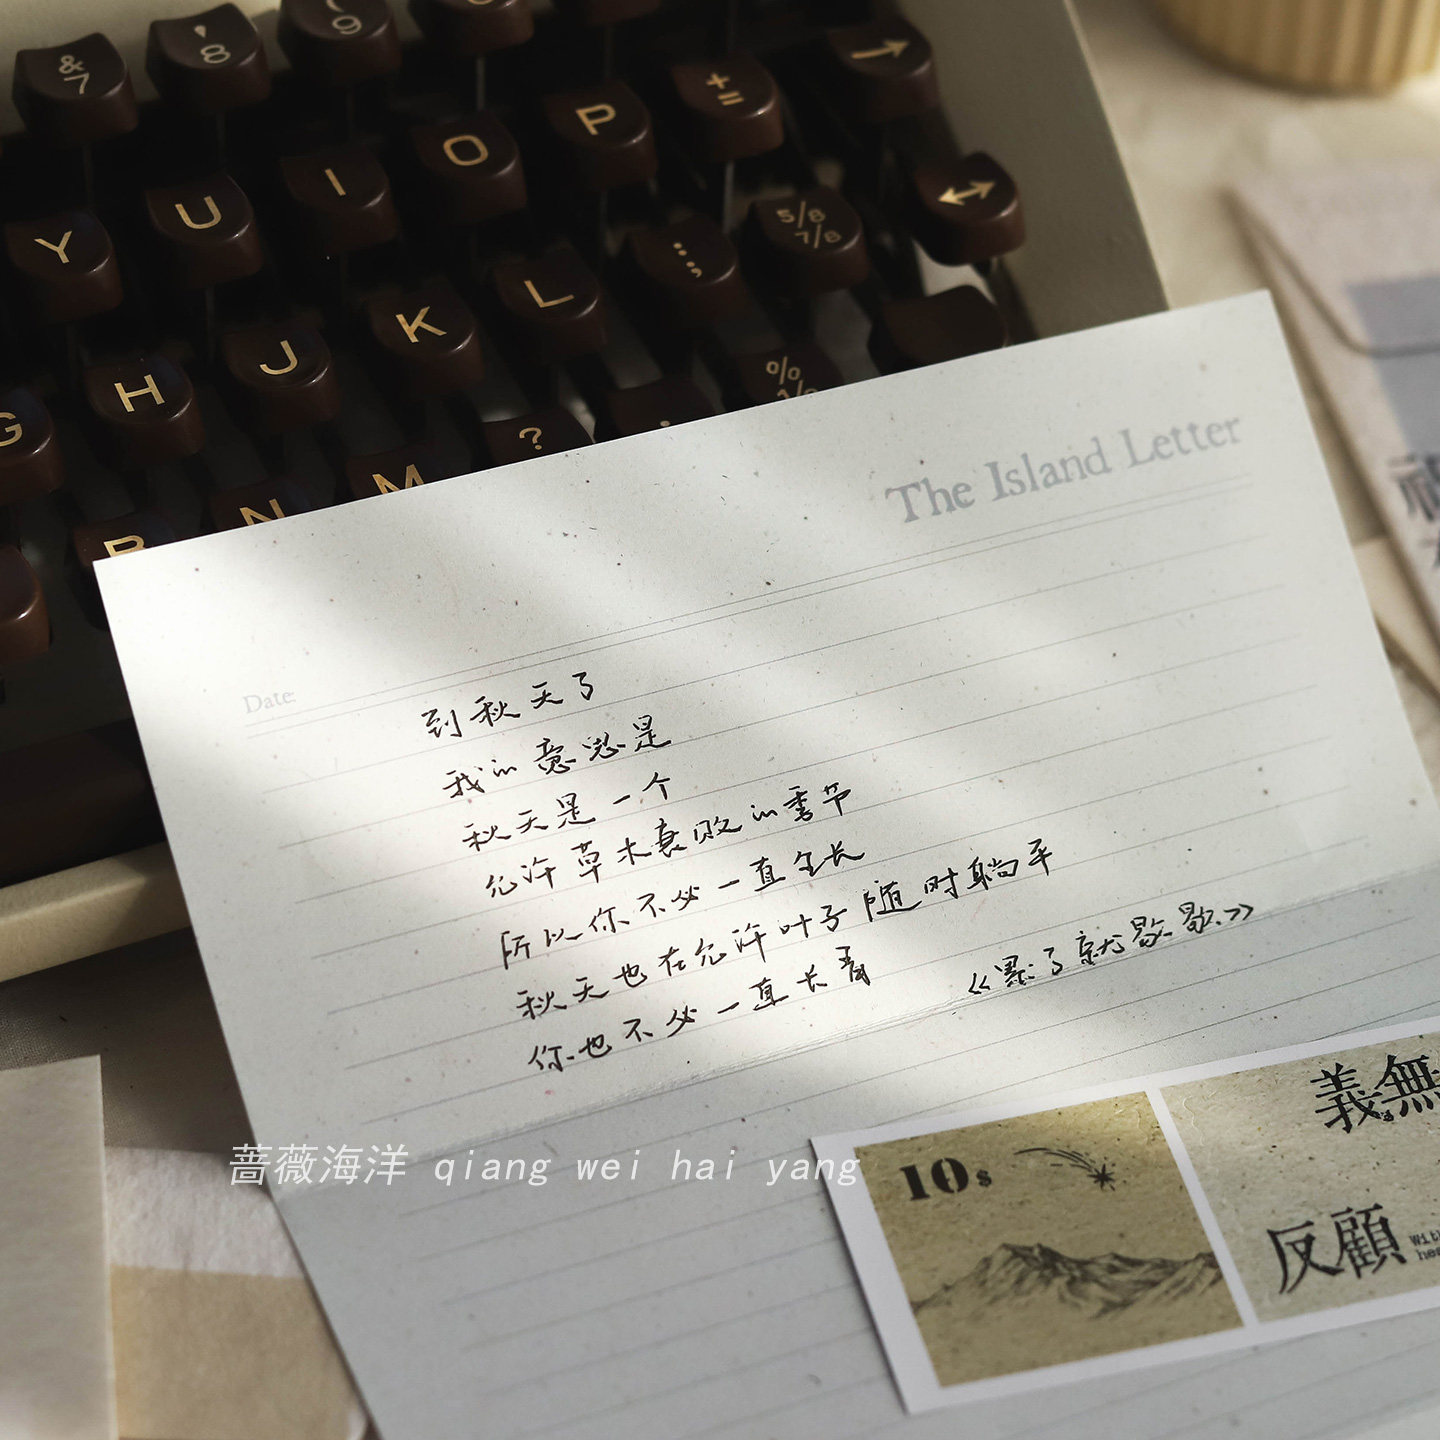 & 7
' 8
( 9
Y U I O P + =
G H J K L : ; 5/8 7/8
B N M ? %
The Island Letter
Date:
到秋天了
我in意思是
秋天是一个
允许草木衰败in季节
所以你不必一直生长
秋天也在允许叶子随时躺平
你也不必一直长青
《累了就歇歇》
蔷薇海洋 qiang wei hai yang
10s
義無
反顧